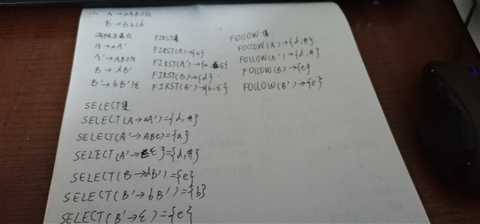 A→aABe|a
B→Bb|d
FIRST集 FOLLOW集
A→aA' FIRST(A)={a} FOLLOW(A)={d,#}
A'→ABe|ε FIRST(A')={a,ε} FOLLOW(A')={d,#}
B→dB' FIRST(B)={d} FOLLOW(B)={e}
B'→bB'|ε FIRST(B')={b,ε} FOLLOW(B')={e}
SELECT集
SELECT(A→aA')={d,#}
SELECT(A'→ABe)={a}
SELECT(A'→ε)={d,#}
SELECT(B→dB')={e}
SELECT(B'→bB')={b}
SELECT(B'→ε)={e}